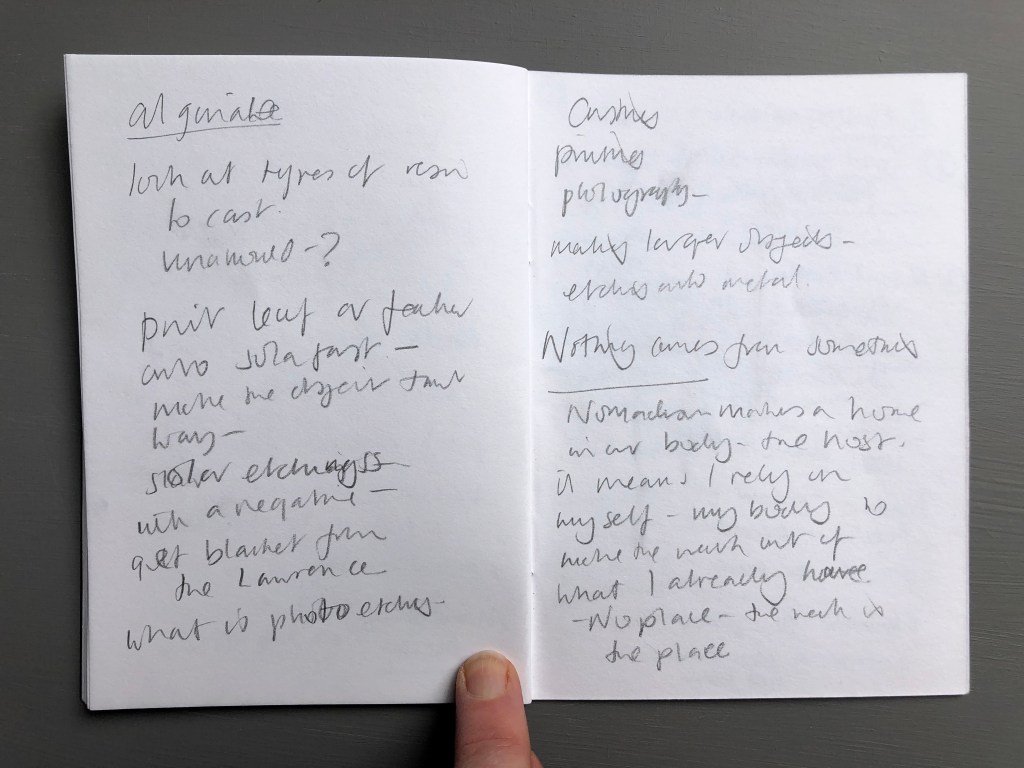 alginate
look at types of resin
to cast.
unamored - ?
print leaf or feather
onto solafast. -
make the object that
way -
solar etchings
with a negative -
get blanket from
the Lawrence
what is photo etching -
Casting
printing
photography -
making larger objects -
etching onto metal.
Nothing comes from something
Nomadism makes a home
in our body - the host.
it means I rely on
myself - my body to
make the work out of
what I already have
- No place - the work is
the place